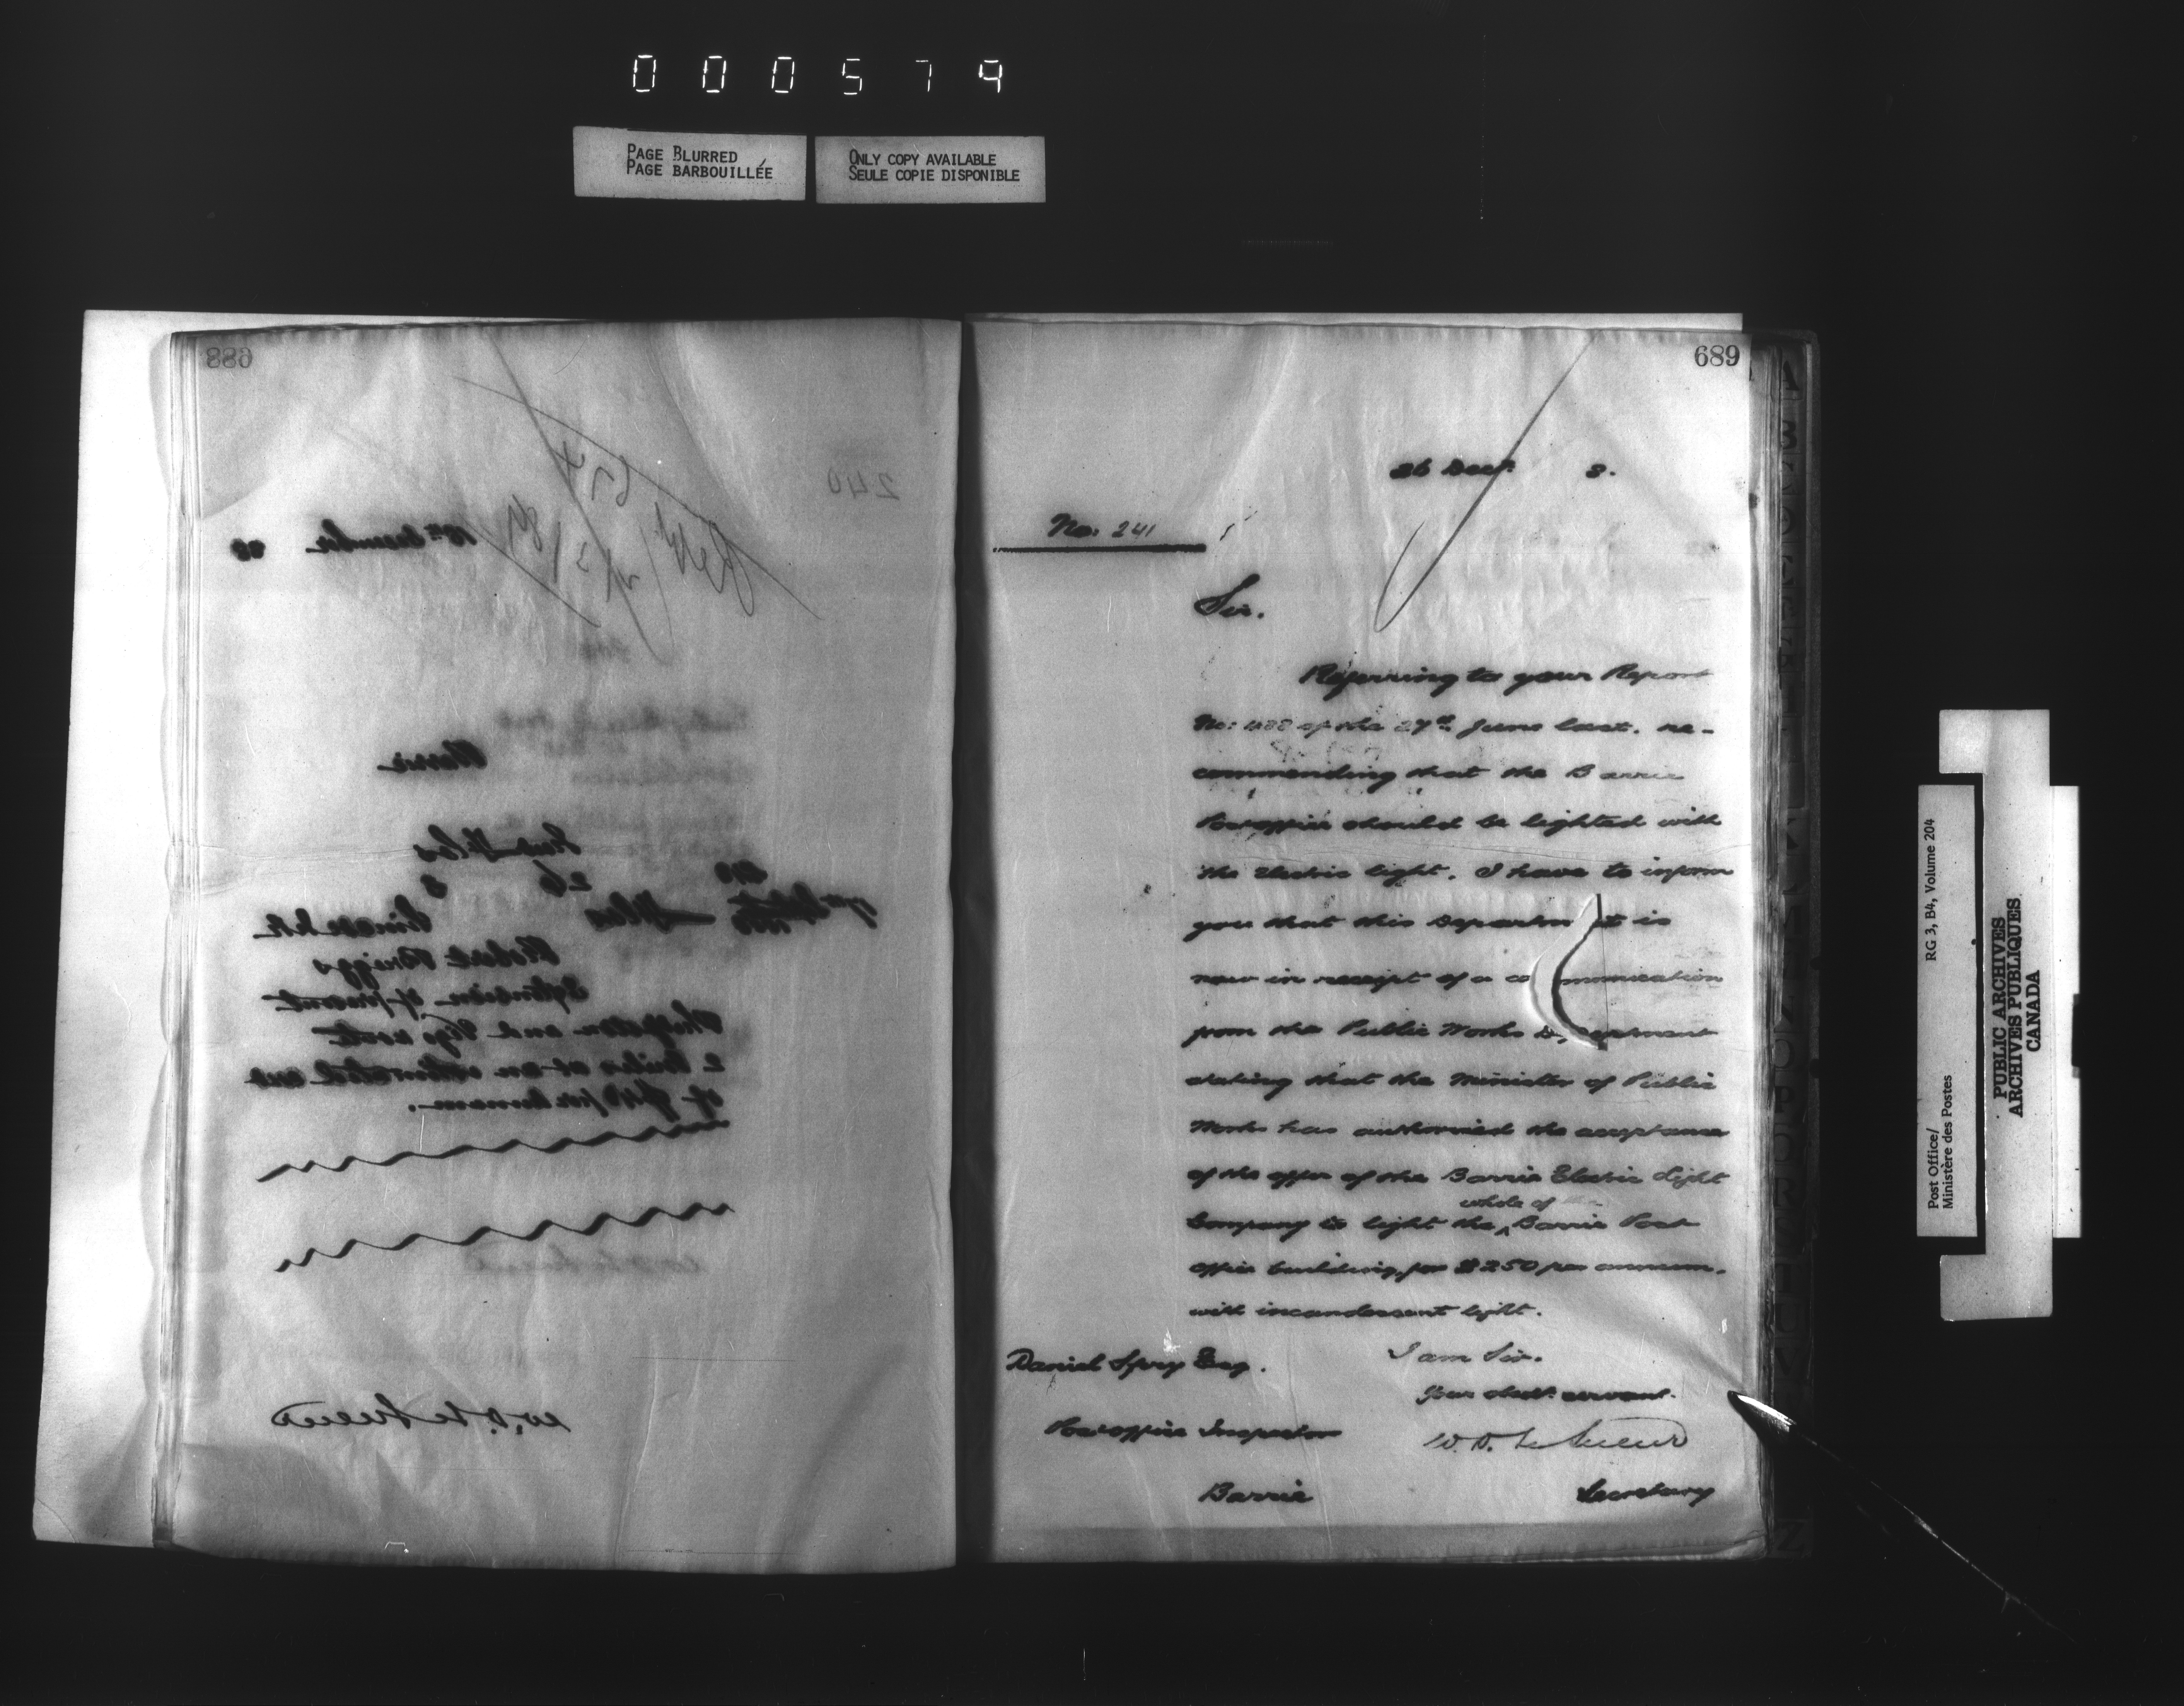 000579
PAGE BLURRED
PAGE BARBOUILLÉE
ONLY COPY AVAILABLE
SEULE COPIE DISPONIBLE
688
240
18th December 88
Barrie
26 8
Robert Briggs
Extension of present
and Vigo route
2 miles at an estimated cost
of $40 per annum.
W. D. LeSueur
689
26 Decr. 8.
No: 241
Sir.
Referring to your Report
No: of the 27th June last. re-
commending that the Barrie
Postoffice should be lighted with
the Electric light. I have to inform
you that this Department is
now in receipt of a communication
from the Public Works Department
stating that the Minister of Public
Works has authorized the acceptance
of the offer of the Barrie Electric Light
Company to light the whole of the Barrie Post
office building, for $250 per annum.
with incandescent light.
I am Sir.
Your obedt. servant.
W. D. LeSueur
Secretary
Daniel Spry Esq.
Postoffice Inspector
Barrie
Post Office/
Ministère des Postes
RG 3, B4, Volume 204
PUBLIC ARCHIVES
ARCHIVES PUBLIQUES
CANADA